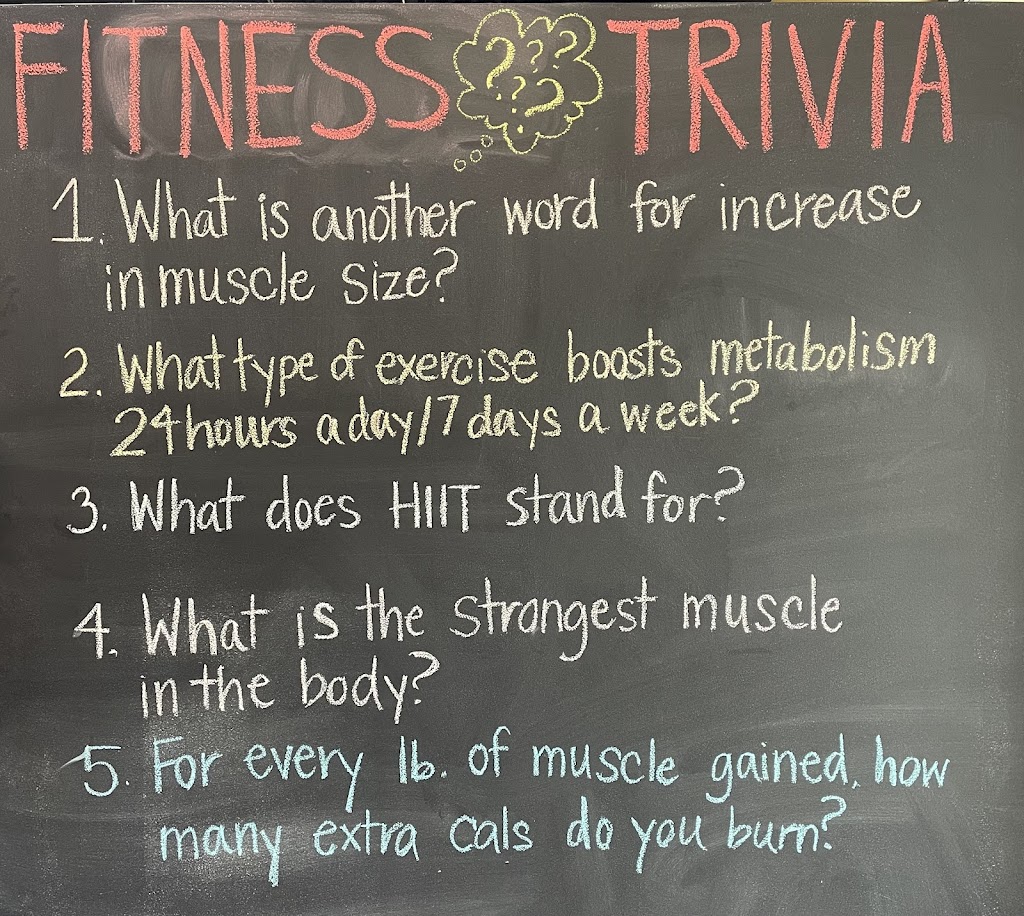 FITNESS ??? ??? TRIVIA
1. What is another word for increase
in muscle size?
2. What type of exercise boosts metabolism
24 hours a day/7 days a week?
3. What does HIIT stand for?
4. What is the strongest muscle
in the body?
5. For every lb. of muscle gained, how
many extra cals do you burn?